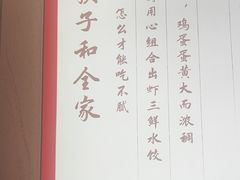 鸡蛋蛋黄大而浓稠
用心组合出虾三鲜水饺
怎么才能吃不腻
孩子和全家